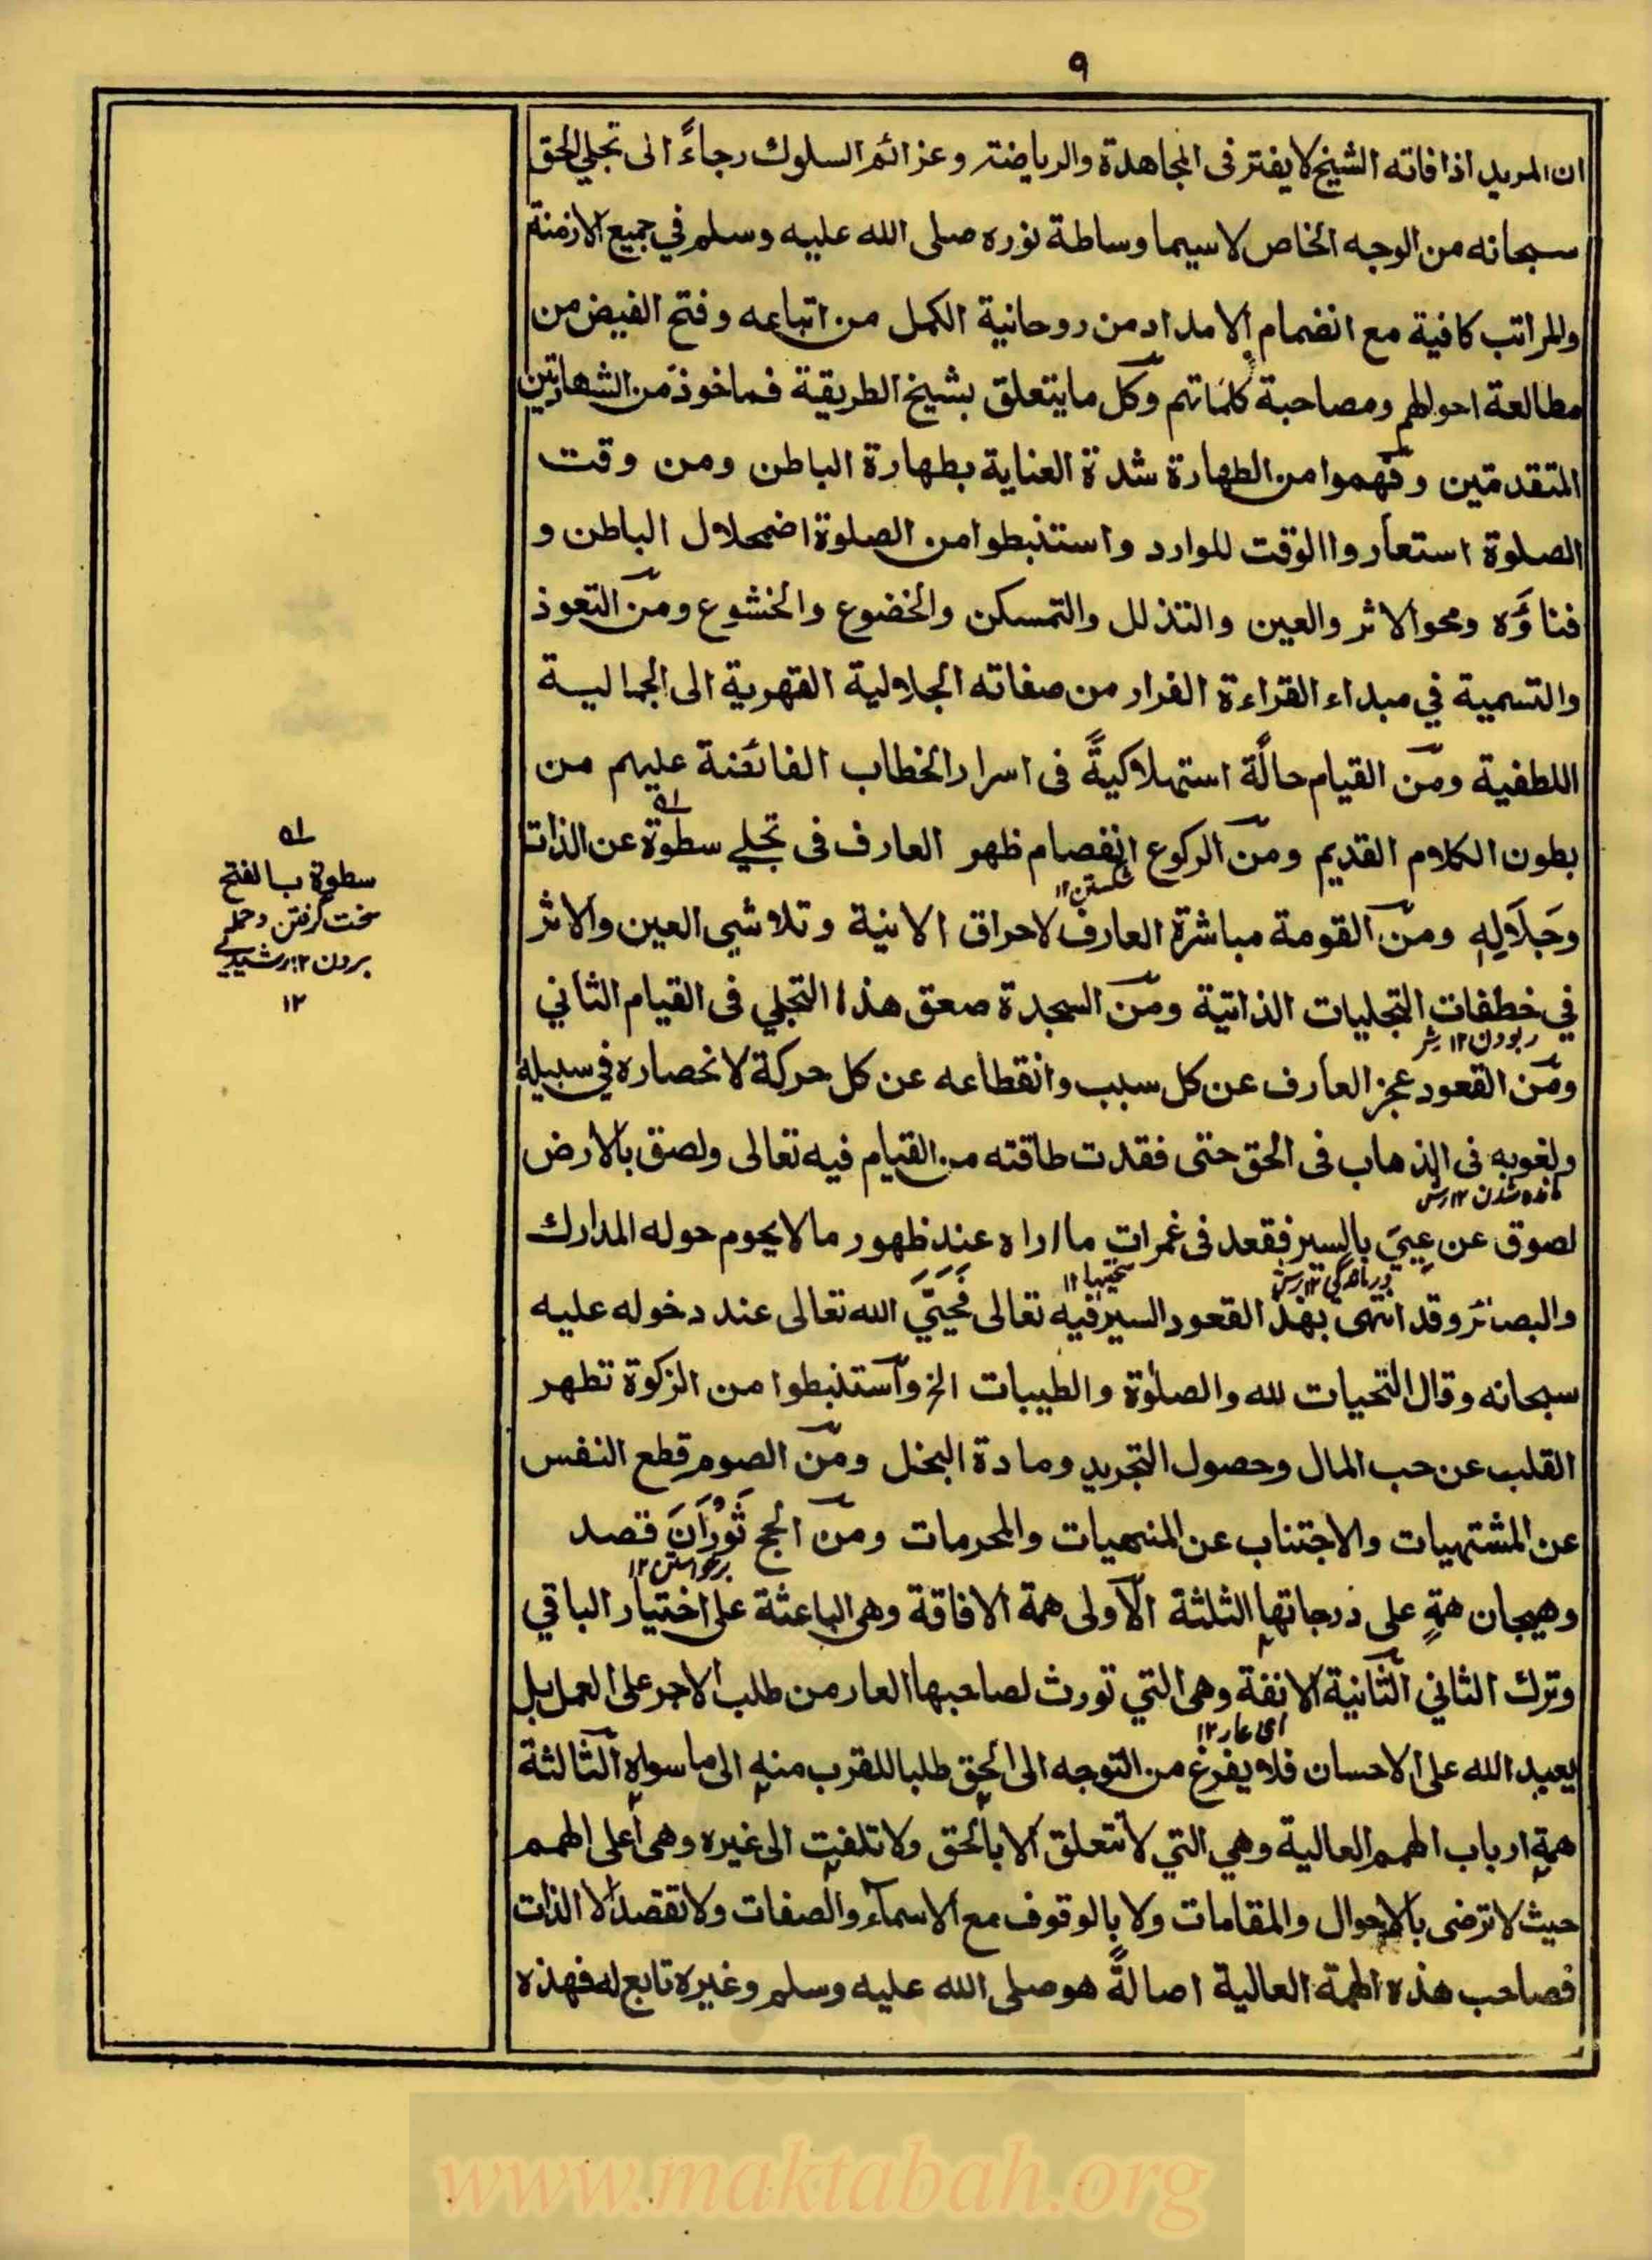 ٩
ان المريد اذا فاته الشيخ لا يفتر فى المجاهدة والرياضة وعزائم السلوك رجاءً الى تجلي الحق
سبحانه من الوجه الخاص لا سيما وساطة نوره صلى الله عليه وسلم في جميع الازمنة
والمراتب كافية مع انضمام الامداد من روحانية الكمل من اتباعه وفتح الفيض من
مطالعة احوالهم ومصاحبة كلماتهم وكل ما يتعلق بشيخ الطريقة فماخوذ من الشهادتين
المتقدمتين وفهموا من الطهارة شدة العناية بطهارة الباطن ومن وقت
الصلوة استعاروا الوقت للوارد واستنبطوا من الصلوة اضمحلال الباطن و
فناؤه ومحو الاثر والعين والتذلل والتمسكن والخضوع والخشوع ومن التعوذ
والتسمية في مبداء القراءة الفرار من صفاته الجلالية القهرية الى الجمالية
اللطفية ومن القيام حالة استهلاكيةً فى اسرار الخطاب الفائضة عليهم من
بطون الكلام القديم ومن الركوع انفصام ظهر العارف فى تجلي سطوة عن الذات
شكستن ١٢
وجَلَالِهِ ومن القومة مباشرة العارف لاحراق الانية وتلاشي العين والاثر
في خطفات التجليات الذاتية ومن السجدة صعق هذا التجلي فى القيام الثاني
ربودن ١٢ رش
ومن القعود عجز العارف عن كل سبب وانقطاعه عن كل حركة لانحصاره في سبيله
ولغوبه فى الذهاب فى الحق حتى فقدت طاقته من القيام فيه تعالى ولصق بالارض
مانده شدن ١٢ رش
لصوق عن عِيِيّ بالسير فقعد فى غمرات ما اراه عند ظهور ما لا يحوم حوله المدارك
درماندگى ١٢ رش سختيها ١٢
والبصائر وقد انتهى بهذا القعود السير فيه تعالى فَحَيَّى الله تعالى عند دخوله عليه
سبحانه وقال التحيات لله والصلوٰة والطيبات الخ واستنبطوا من الزكوة تطهر
القلب عن حب المال وحصول التجريد ومادة البخل ومن الصوم قطع النفس
عن المشتهيات والاجتناب عن المنهيات والمحرمات ومن الحج ثَوُرَانَ قصد
برخواستن ١٢
وهيجان همةٍ على درجاتها الثلثة الاولى همة الافاقة وهى الباعثة على اختيار الباقي
وترك الثاني الثانية الانفة وهى التي تورث لصاحبها العار من طلب الاجر على العمل بل
اى عار ١٢
يعبد الله على الاحسان فلا يفرغ من التوجه الى الحق طلبا للقرب منه الى ما سواه الثالثة
همة ارباب الهمم العالية وهي التي لا تتعلق الا بالحق ولا تلفت الى غيره وهى اعلى الهمم
حيث لا ترضى بالاحوال والمقامات ولا بالوقوف مع الاسماء والصفات ولا تقصد الا الذات
فصاحب هذه الهمة العالية اصالةً هو صلى الله عليه وسلم وغيره تابع له فهذه
سطوة بالفتح
سخت گرفتن وحمله
بردن ١٢ رشيدي
١٢
www.maktabah.org